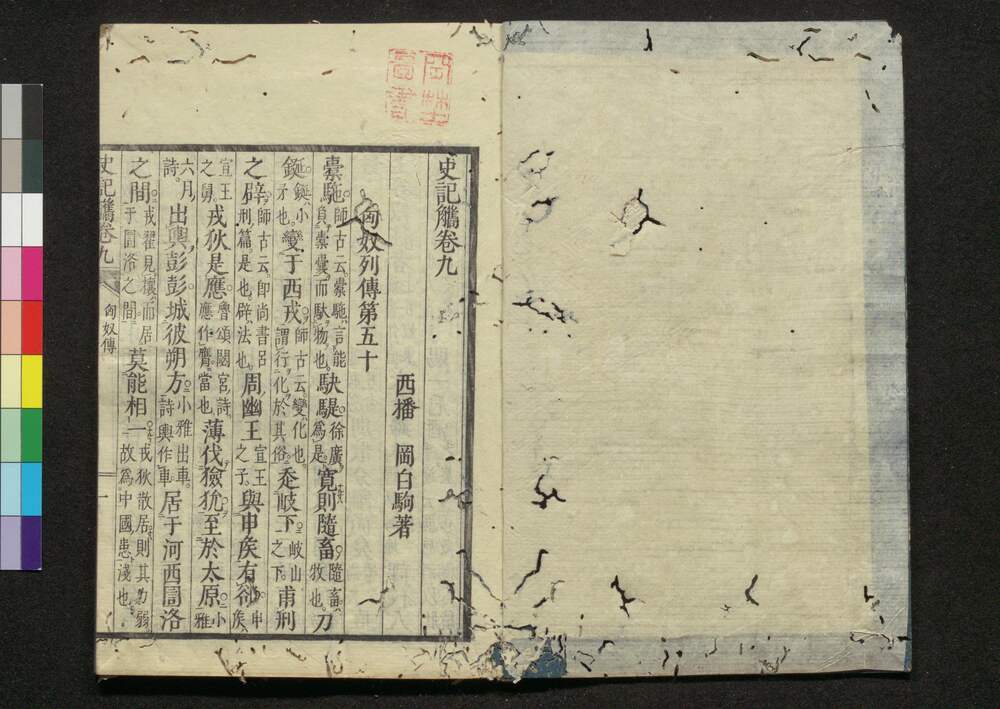 史記觿卷九
西播 岡白駒著
匈奴列傳第五十
橐駞師古云橐駞言能負橐囊而馱物也駃騠徐廣爲是寛則隨畜隨畜牧也刀
鋋鋋小矛也變于西戎師古云變化也謂行化於其俗走岐下岐山之下甫刑
之辟師古云即尚書呂刑篇是也辟法也周幽王宣王之子與申矦有郤申矦
宣王之舅戎狄是應魯頌閟宮詩應作膺當也薄伐獫狁至於太原小雅
六月詩出輿彭彭城彼朔方小雅出車詩輿作車居于河西圁洛
之間戎翟見攘而居于圁洛之間莫能相一戎狄散居則其力弱故爲中國患淺也
史記觿卷九 匈奴傳 一